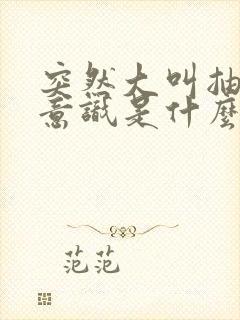 突然大叫抽
意識是什麼
范范